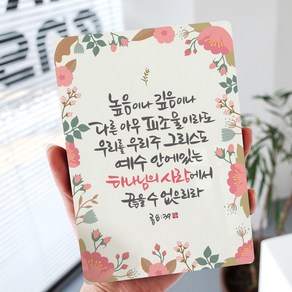 높음이나 깊음이나
다른 아무 피조물이라도
우리를 우리 주 그리스도
예수 안에 있는
하나님의 사랑에서
끊을 수 없으리라
롬 8:39